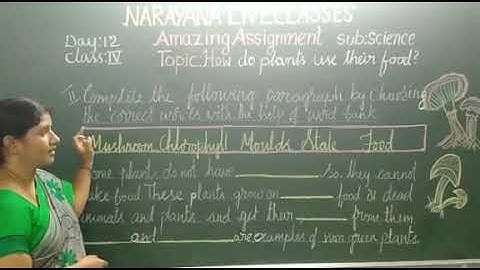 NARAYANA LIVE CLASSES
Day:12 Amazing Assignment sub:Science
Class:IV Topic:How do plants use their food?
II Complete the following paragraph by choosing
the correct words with the help of word bank
Mushroom Chlorophyll Moulds Stale Food
some plants do not have ______, so they cannot
make food These plants grow on ______ food as dead
animals and plants and get their ______ from them.
______ and ______ are examples of non green plants.